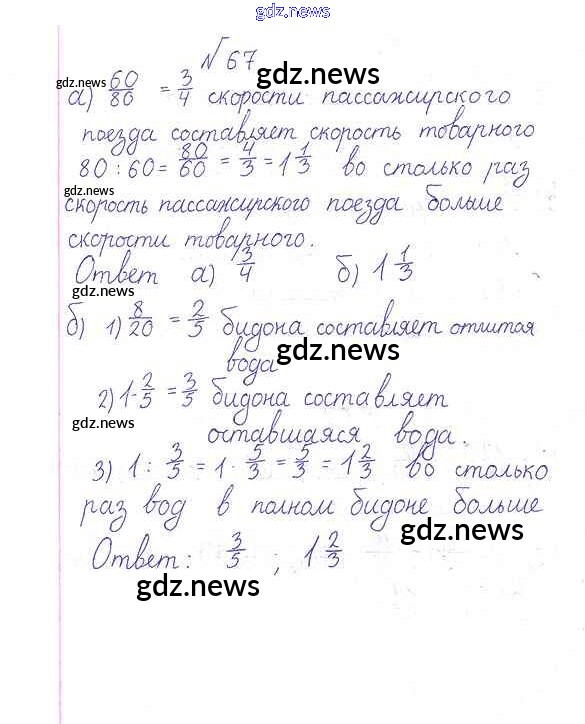 gdz.news
№ 67
gdz.news
gdz.news
а) 60/80 = 3/4 скорости пассажирского
поезда составляет скорость товарного
80 : 60 = 80/60 = 4/3 = 1 1/3 во столько раз
gdz.news
скорость пассажирского поезда больше
скорости товарного.
Ответ а) 3/4 б) 1 1/3
gdz.news
б) 1) 8/20 = 2/5 бидона составляет отлитая
вода
gdz.news
2) 1 - 2/5 = 3/5 бидона составляет
gdz.news
оставшаяся вода.
3) 1 : 3/5 = 1 · 5/3 = 5/3 = 1 2/3 во столько
раз вод в полном бидоне больше
gdz.news
Ответ: 3/5 ; 1 2/3
gdz.news